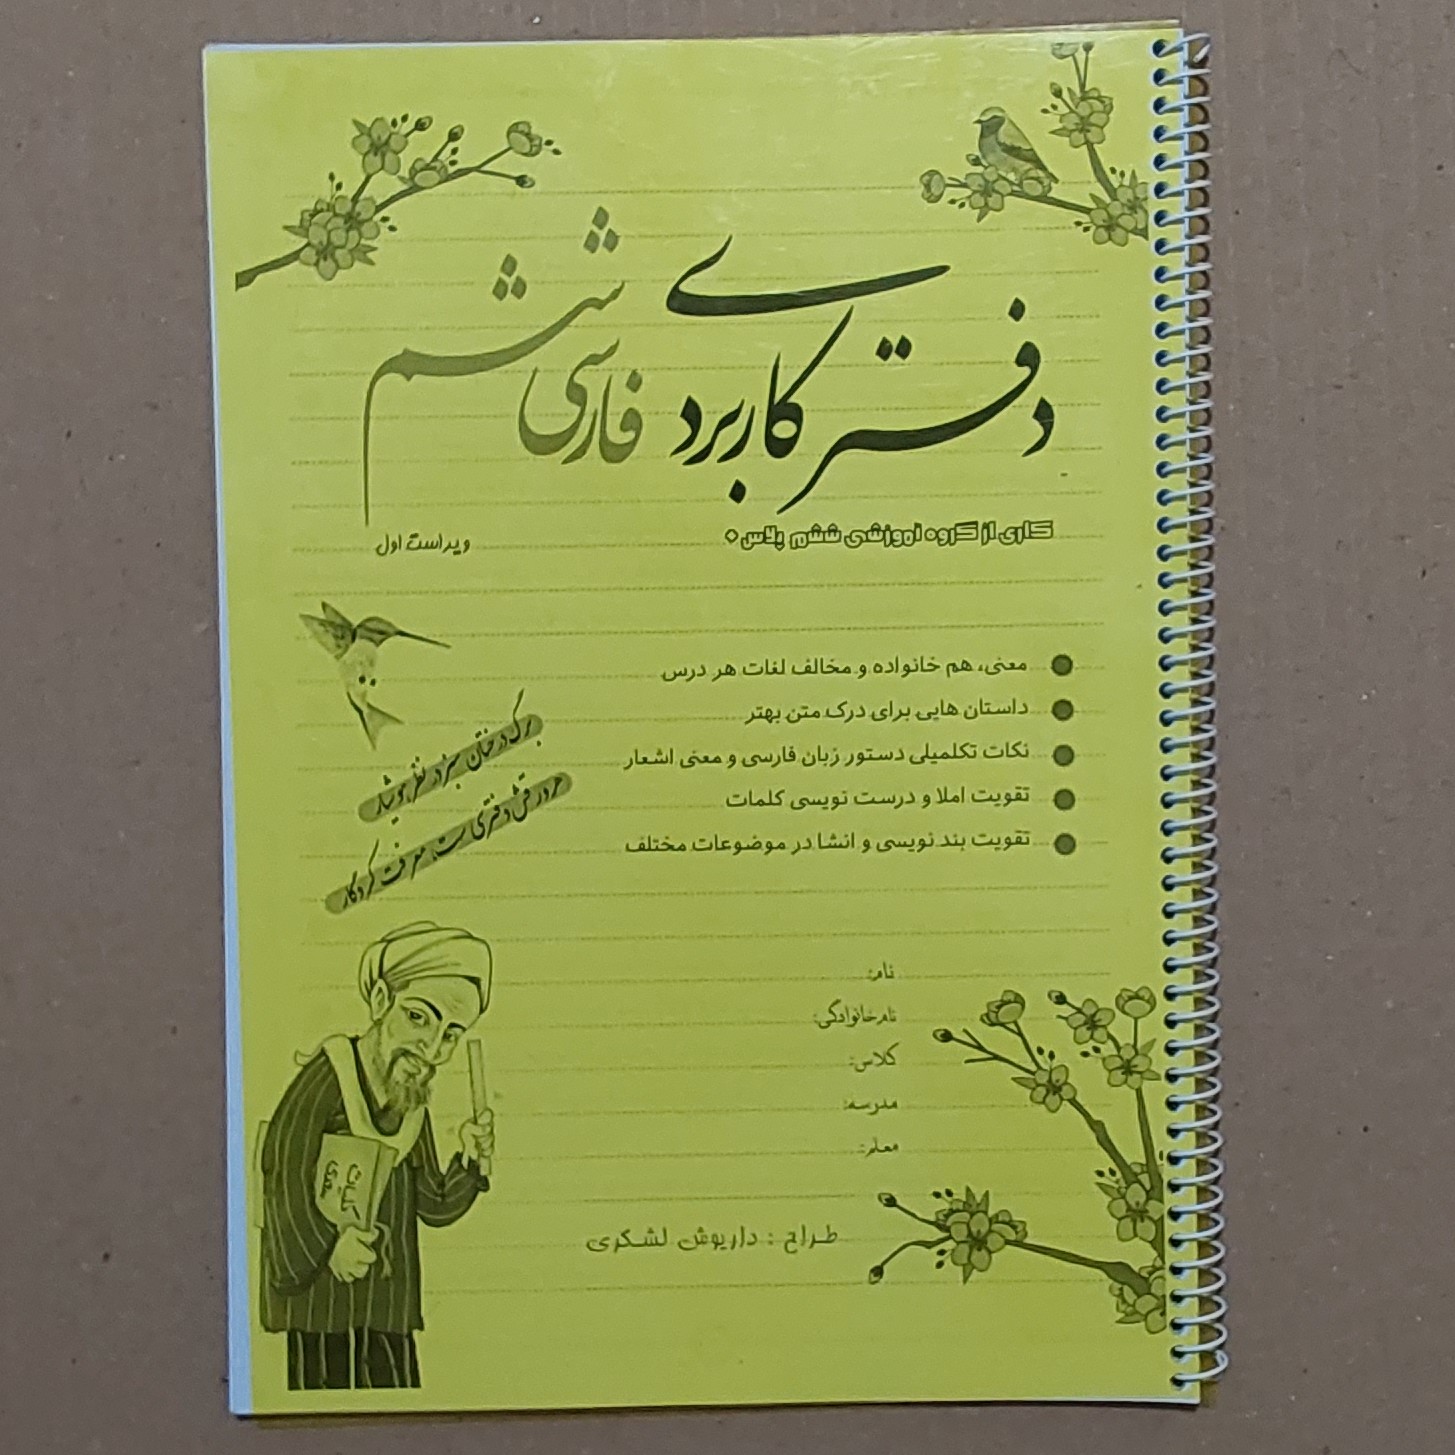 دفتر کاربردی فارسی ششم
کاری از گروه آموزشی ششم پلاس
ویراست اول
معنی، هم خانواده و مخالف لغات هر درس
داستان هایی برای درک متن بهتر
نکات تکلمیلی دستور زبان فارسی و معنی اشعار
تقویت املا و درست نویسی کلمات
تقویت بند نویسی و انشا در موضوعات مختلف
برگ درختان سبز در نظر هوشیار
هر ورقش دفتری ست، معرفت کردگار
نام:
نام خانوادگی:
کلاس:
مدرسه:
معلم:
کلیات
سعدی
طراح : داریوش لشکری